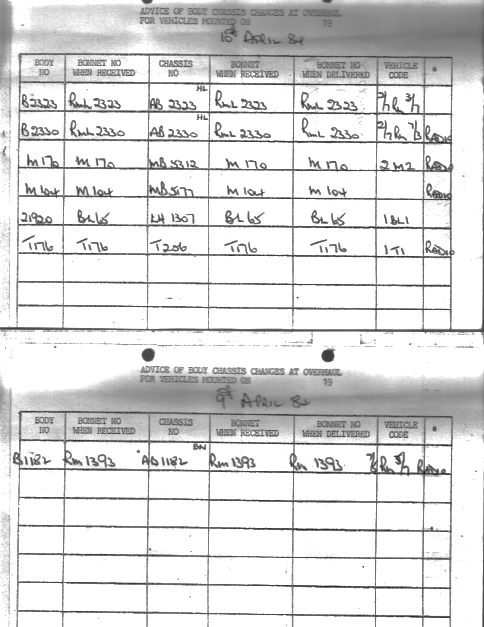 ADVICE OF BODY CHASSIS CHANGES AT OVERHAUL
FOR VEHICLES MOUNTED ON 19
10th APRIL 84
BODY NO BONNET NO WHEN RECEIVED CHASSIS NO BONNET WHEN RECEIVED BONNET NO WHEN DELIVERED VEHICLE CODE *
B2323 RML 2323 AB 2323 HL RML 2323 RML 2323 2/7 RM 3/7
B2330 RML 2330 AB 2330 HL RML 2330 RML 2330 2/7 RM 7/3 RADIO
M 170 M 170 MB 5312 M 170 M 170 2 M2 RADIO
M 104 M 104 MB5177 M 104 M 104 RADIO
21920 BL 65 LH 1307 BL 65 BL 65 1BL1
T176 T176 T256 T176 T176 1T1 RADIO
ADVICE OF BODY CHASSIS CHANGES AT OVERHAUL
FOR VEHICLES MOUNTED ON 19
9th APRIL 84
BODY NO BONNET NO WHEN RECEIVED CHASSIS NO BONNET WHEN RECEIVED BONNET NO WHEN DELIVERED VEHICLE CODE *
B1182 RM 1393 AD1182 BN RM 1393 RM 1393 7/8 RM 5/7 RADIO